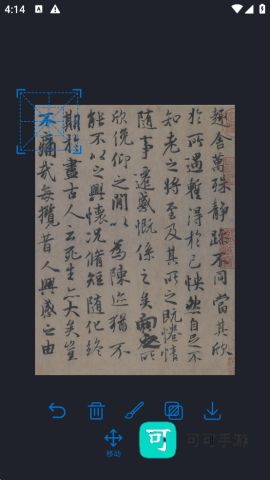 4:14
趣舍萬殊靜躁不同當其欣
於所遇暫得於己怏然自足不
知老之將至及其所之既惓情
隨事遷感慨係之矣向之所
欣俛仰之間以為陳迹猶不
能不以之興懷況脩短隨化終
期於盡古人云死生亦大矣豈
不痛哉每攬昔人興感之由
移动
可 可可手游